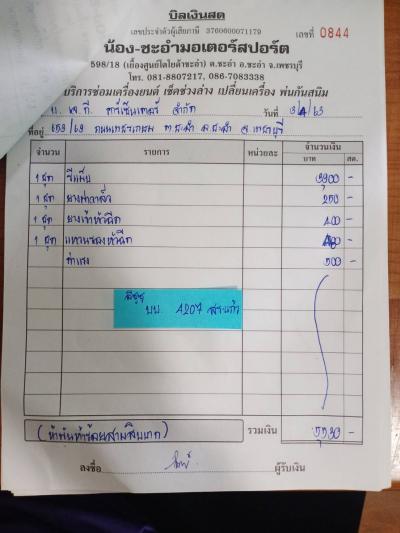 บิลเงินสด
เลขประจำตัวผู้เสียภาษี 3760600071179
เลขที่ 0844
น้อง-ชะอำมอเตอร์สปอร์ต
598/18 (เยื้องศูนย์โตโยต้าชะอำ) ต.ชะอำ อ.ชะอำ จ.เพชรบุรี
โทร. 081-8807217, 086-7083338
บริการซ่อมเครื่องยนต์ เช็คช่วงล่าง เปลี่ยนเครื่อง พ่นกันสนิม
จำกัด วันที่ /63
ที่อยู่ ถนนเพชรเกษม ต.ชะอำ อ.ชะอำ จ.เพชรบุรี
จำนวน รายการ หน่วยละ จำนวนเงิน
บาท สต.
1 ชุด 250 -
1 ชุด ยาง หัวฉีด 400 -
1 ชุด แหวนรองหัวฉีด -
ค่าแรง 500 -
A207 สระแก้ว
(ห้าพันห้าร้อยสามสิบบาท) รวมเงิน 5530 -
ลงชื่อ ผู้รับเงิน